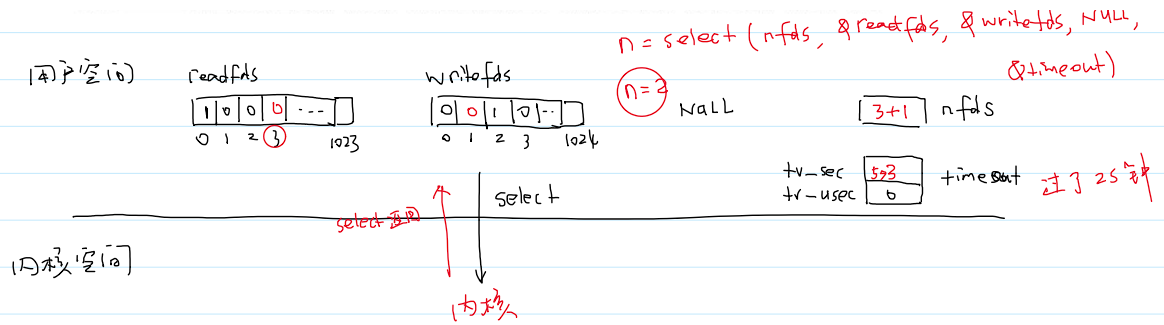 n = select ( nfds, &readfds, &writefds, NULL,
&timeout)
用户空间 readfds writefds
n=2 NULL 3+1 nfds
1 0 0 0 ... 0 0 1 0 ...
0 1 2 3 1023 0 1 2 3 1024
select
tv_sec timeout 过了 2s 钟
tv_usec 0
select 返回
内核空间
内核